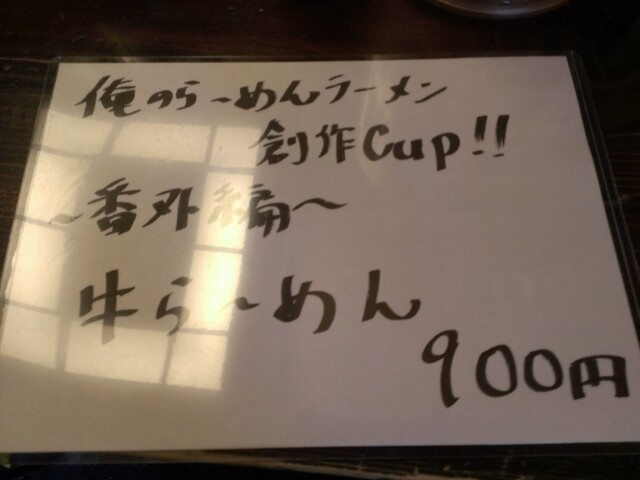 俺のら〜めんラーメン
創作Cup!!
〜番外編〜
牛ら〜めん
900円